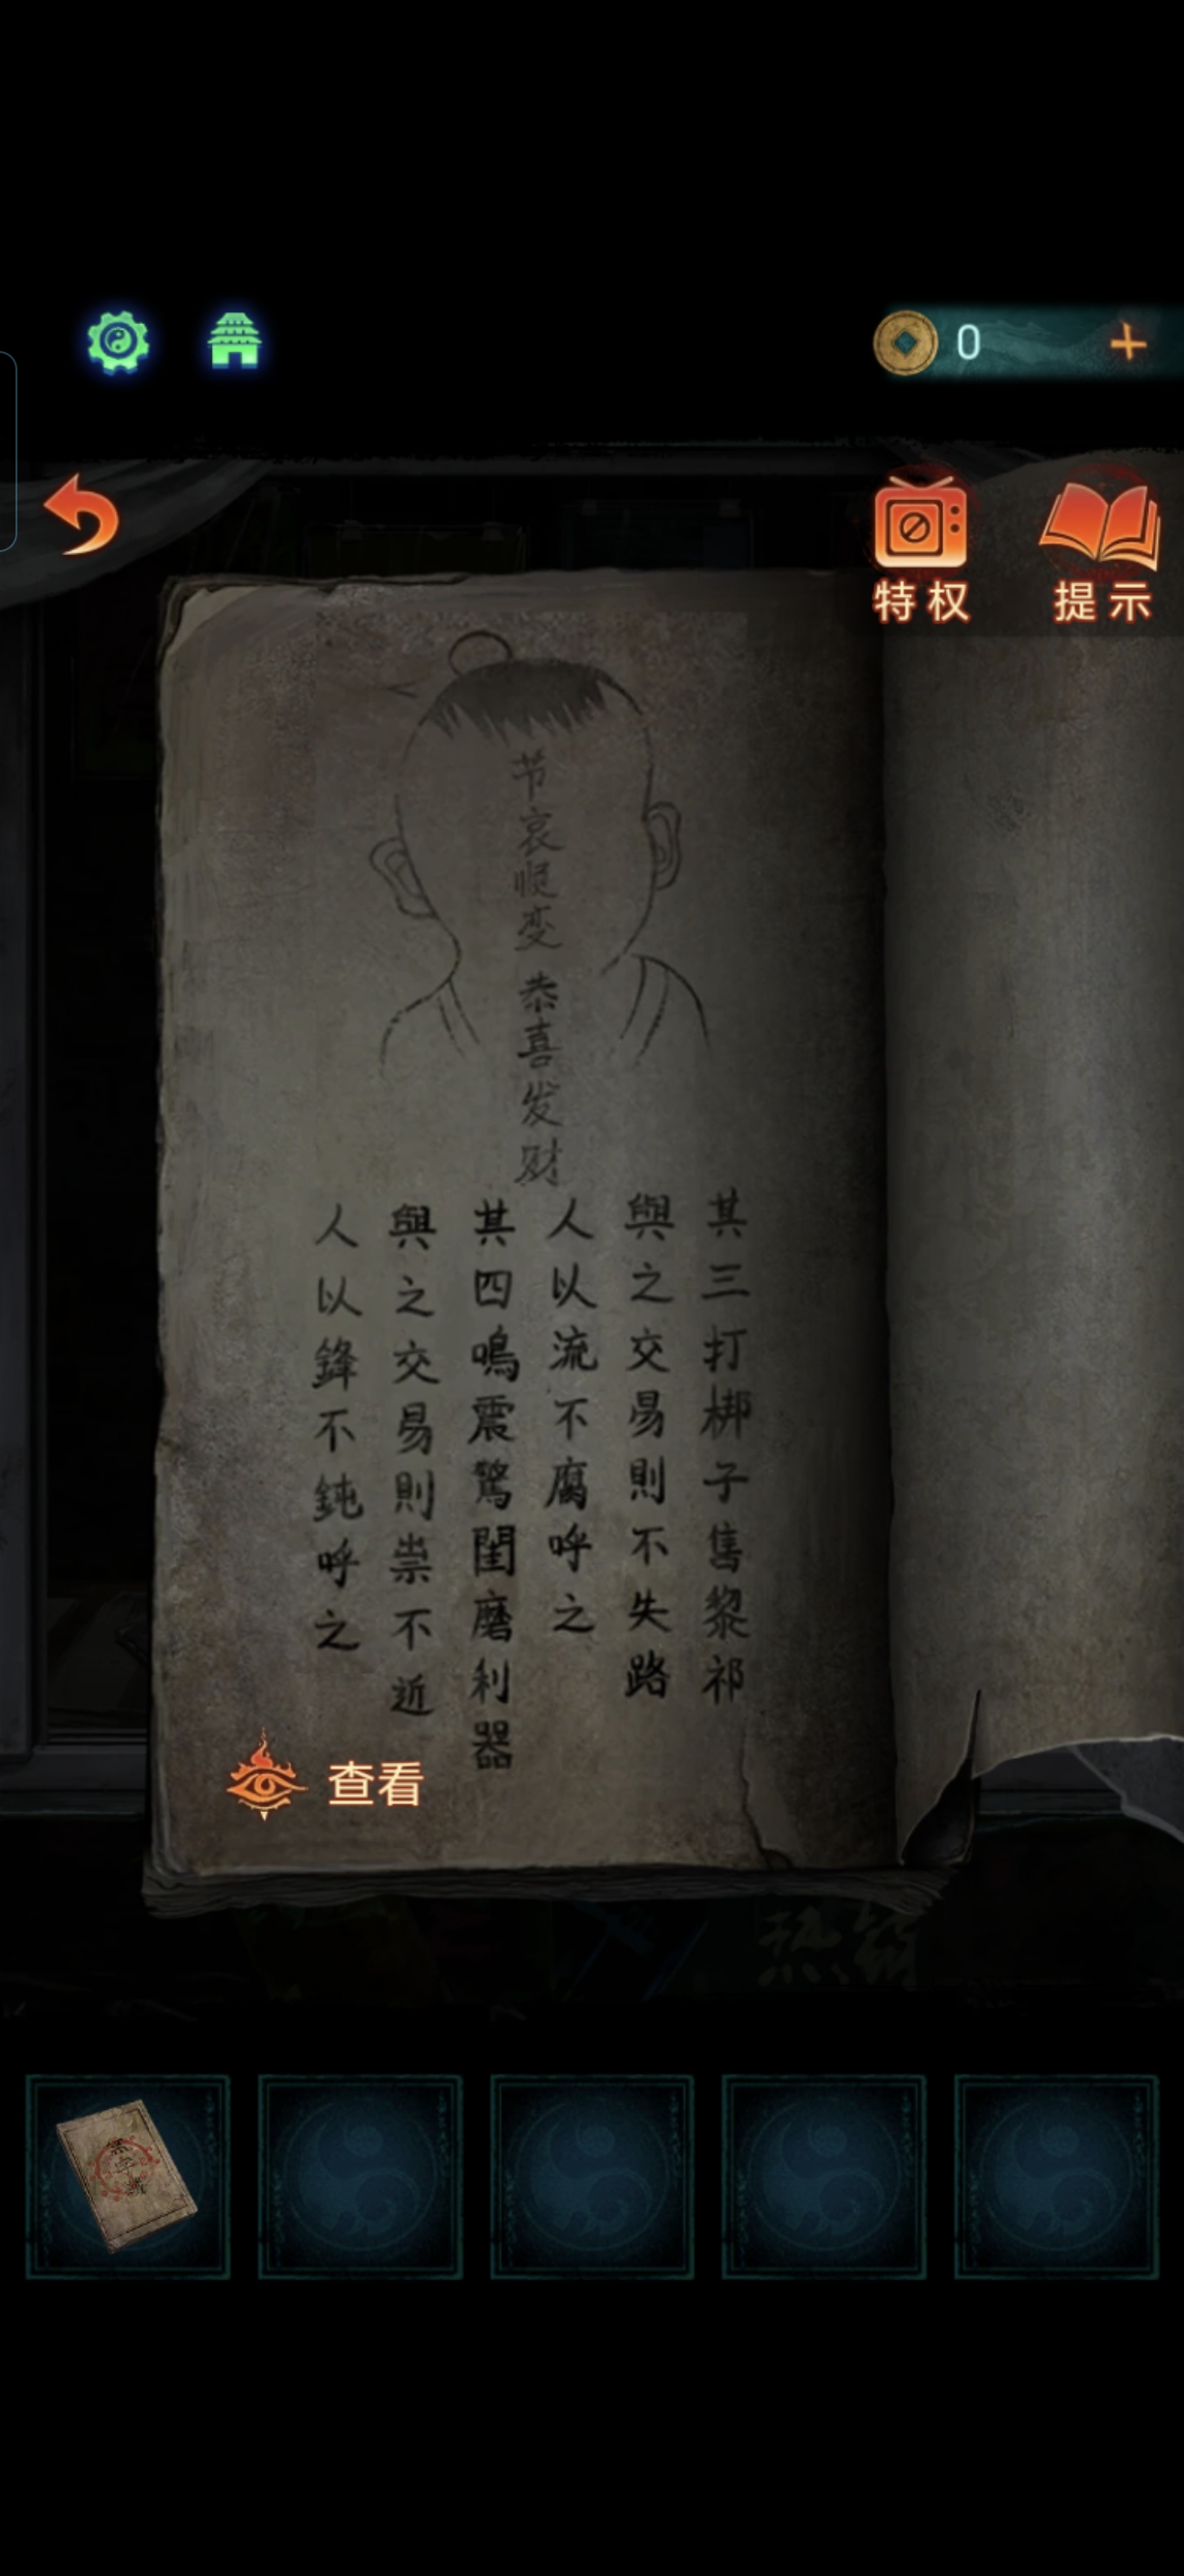 0
特权
提示
节哀顺变 恭喜发财
其三打梆子售黎祁
與之交易則不失路
人以流不腐呼之
其四鳴震驚閨磨利器
與之交易則祟不近
人以鋒不鈍呼之
查看
热销